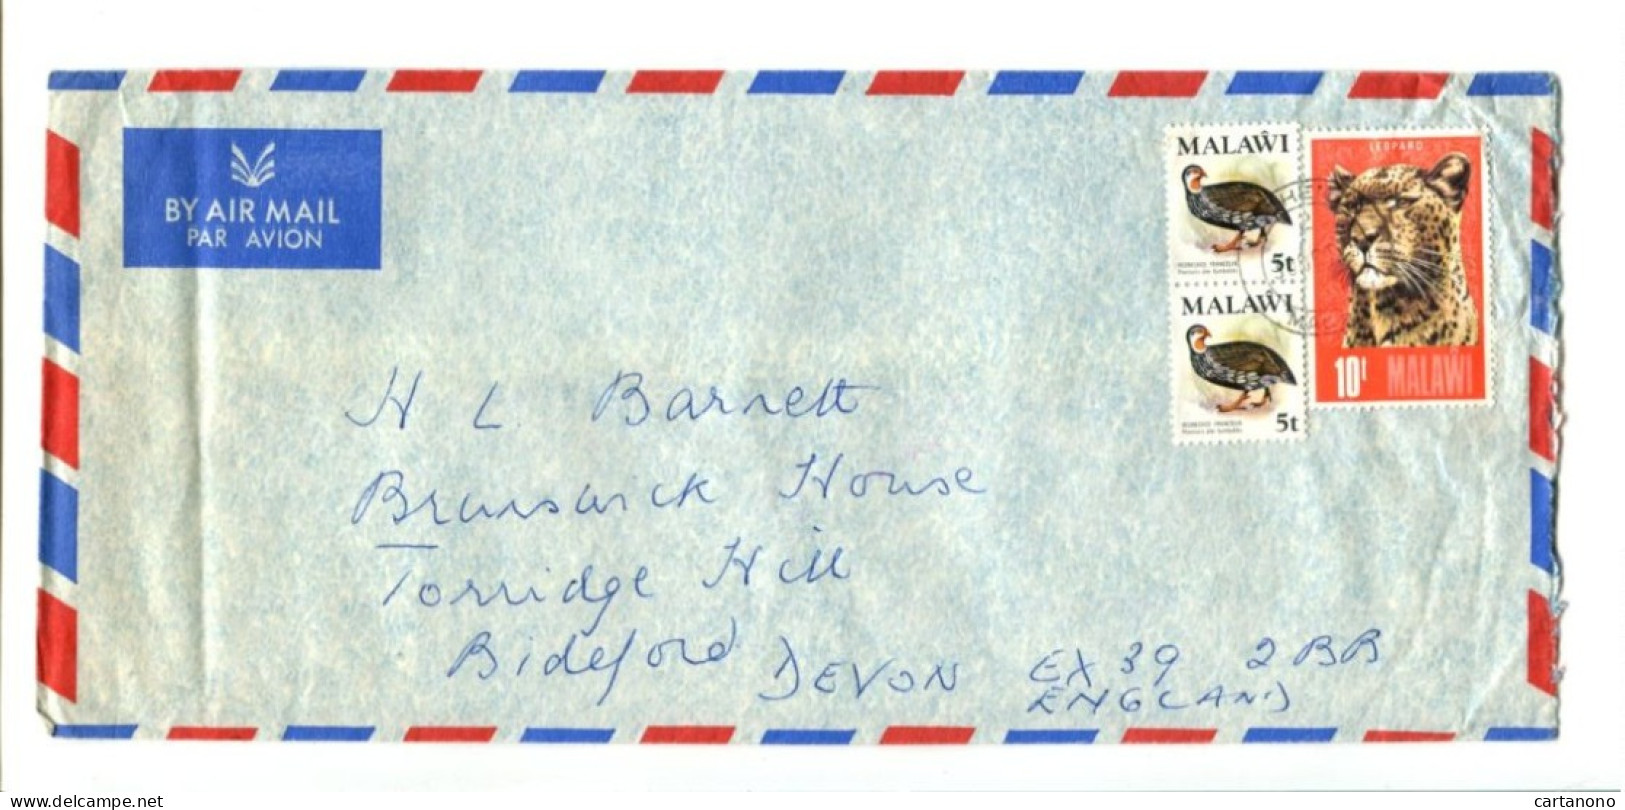 BY AIR MAIL
PAR AVION
MALAŴI
5t
MALAŴI
5t
LEOPARD
10t MALAŴI
H L Barnett
Brunswick House
Torridge Hill
Bideford DEVON EX39 2BB
ENGLAND
delcampe.net
cartanono